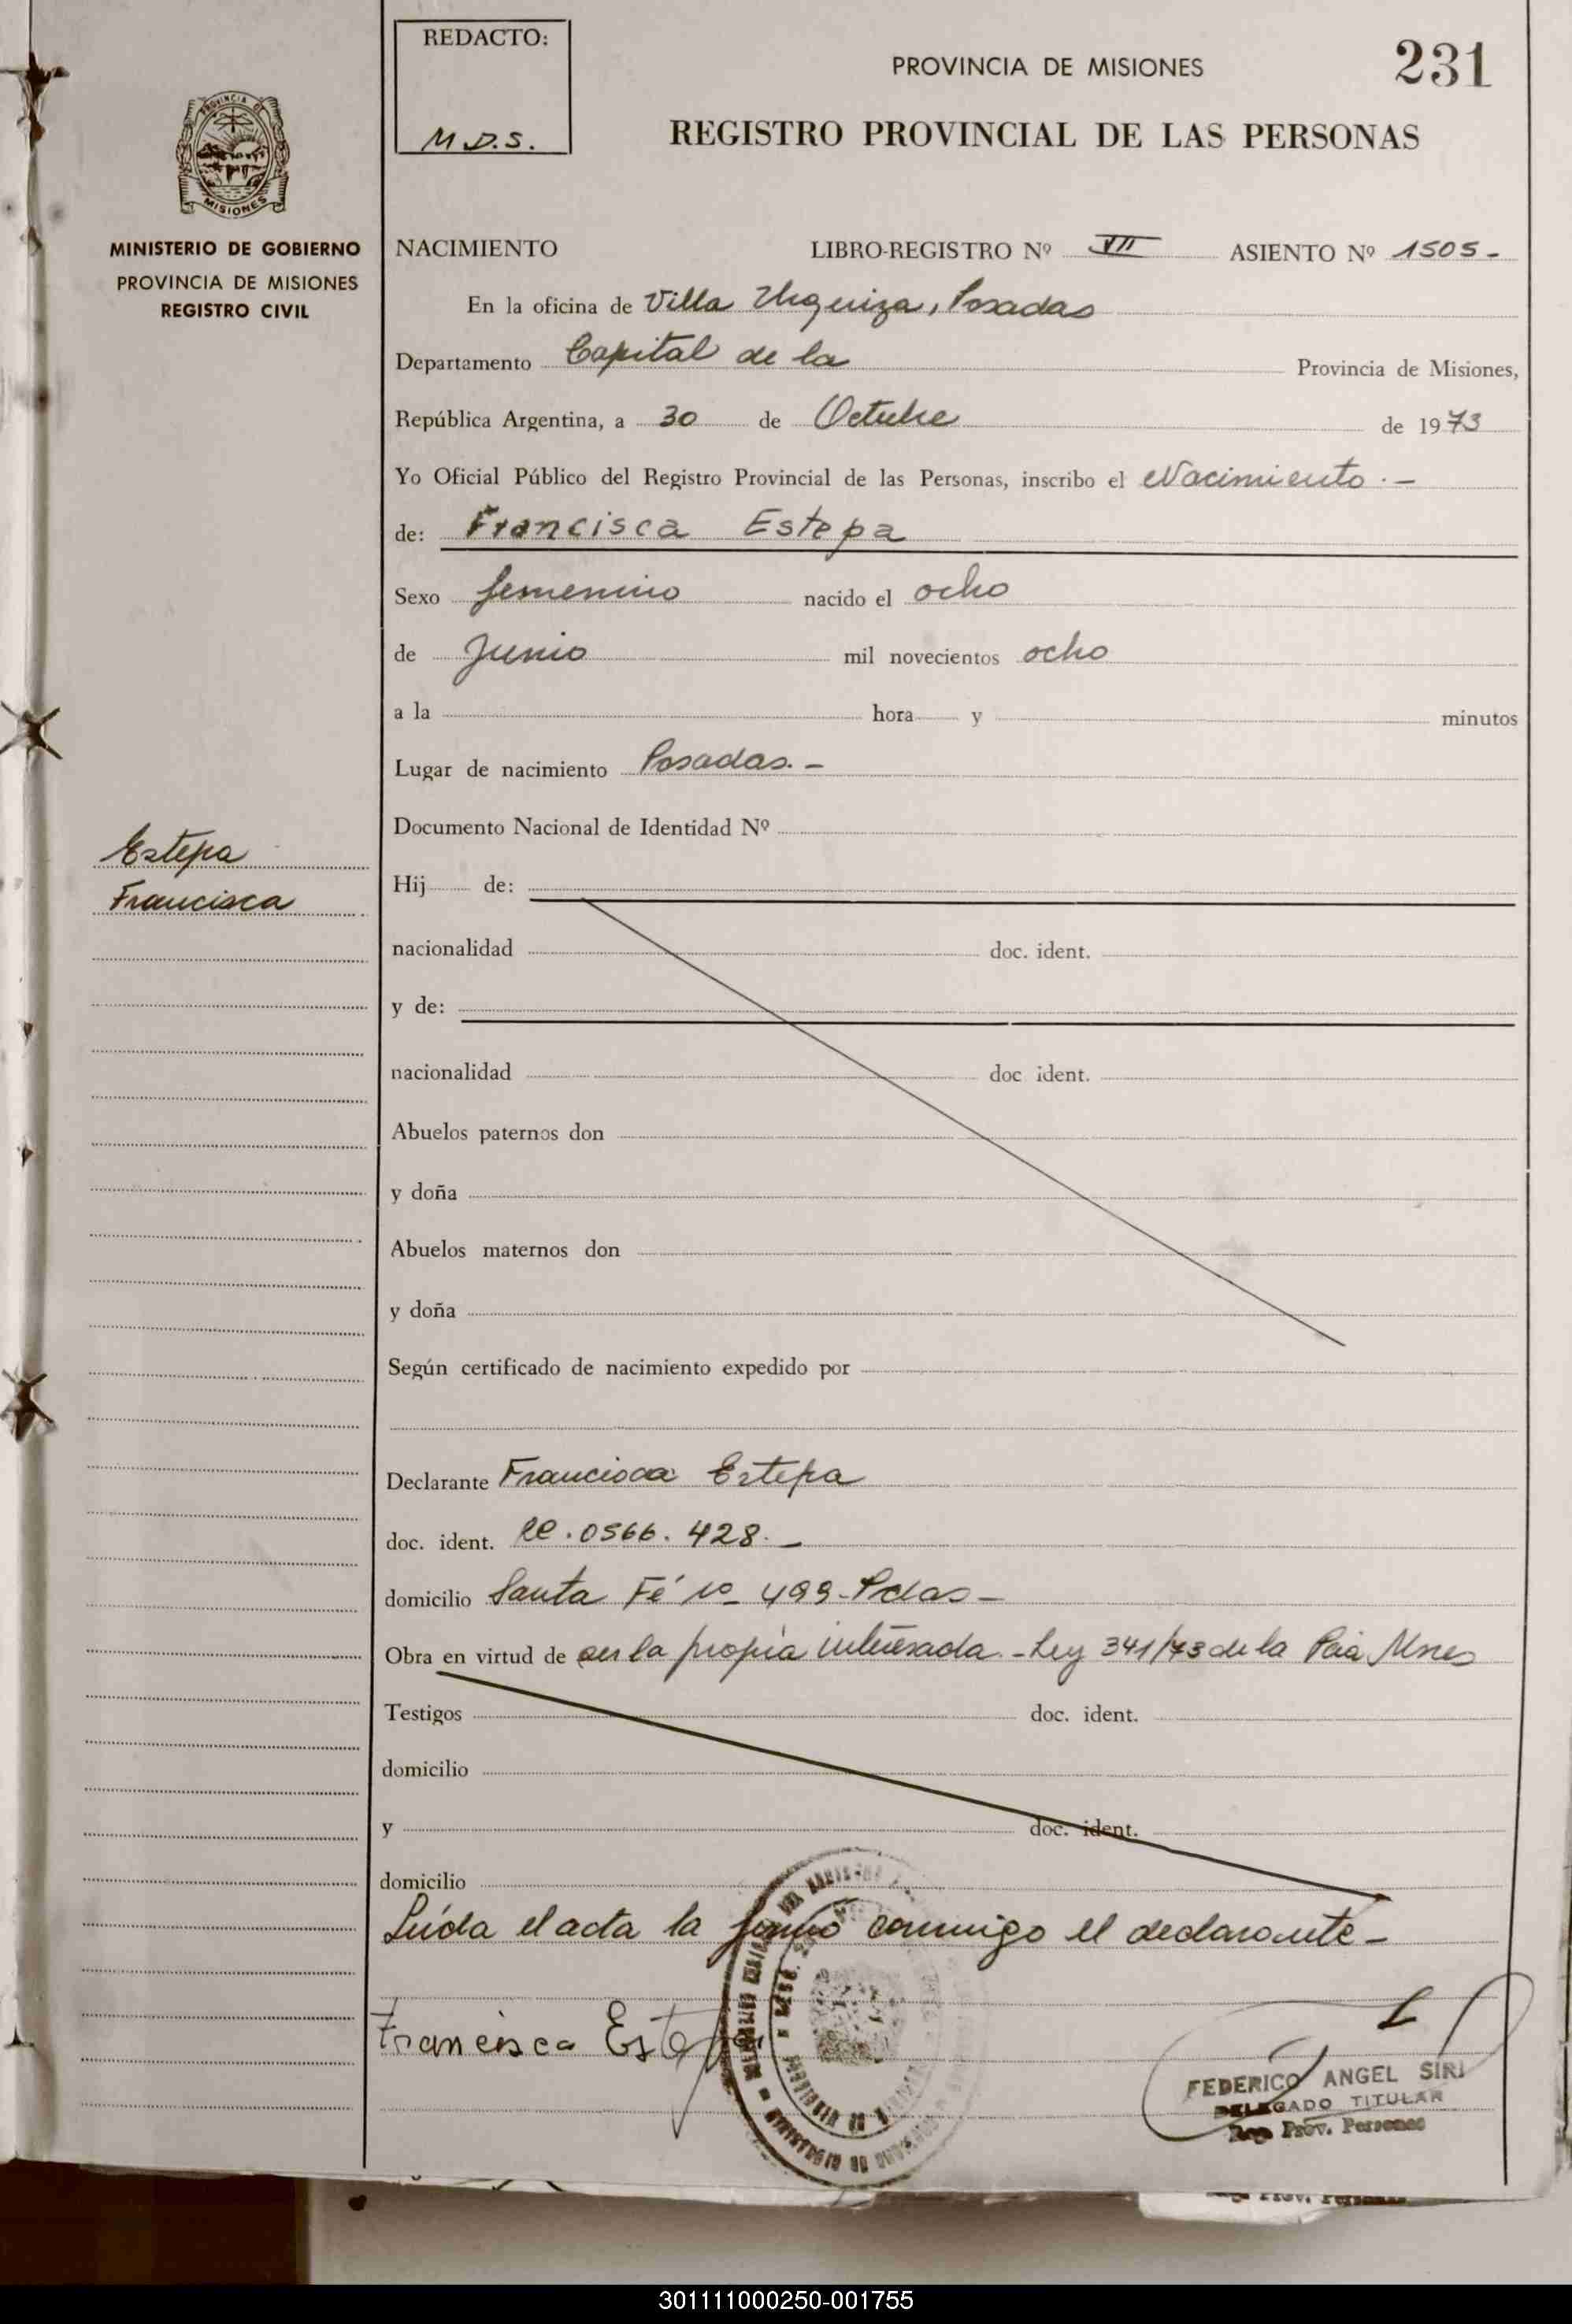 REDACTO:
M.D.S.
PROVINCIA DE MISIONES
231
REGISTRO PROVINCIAL DE LAS PERSONAS
PROVINCIA DE
MISIONES
MINISTERIO DE GOBIERNO
PROVINCIA DE MISIONES
REGISTRO CIVIL
NACIMIENTO LIBRO-REGISTRO Nº VII ASIENTO Nº 1505-
En la oficina de Villa Urquiza, Posadas
Departamento Capital de la Provincia de Misiones,
República Argentina, a 30 de Octubre de 1973
Yo Oficial Público del Registro Provincial de las Personas, inscribo el Nacimiento.-
de: Francisca Estepa
Sexo femenino nacido el ocho
de Junio mil novecientos ocho
a la hora y minutos
Lugar de nacimiento Posadas.-
Documento Nacional de Identidad Nº
Estepa
Francisca
Hij de:
nacionalidad doc. ident.
y de:
nacionalidad doc ident.
Abuelos paternos don
y doña
Abuelos maternos don
y doña
Según certificado de nacimiento expedido por
Declarante Francisca Estepa
doc. ident. 0566.428.-
domicilio Santa Fé nº 499-Pdas-
Obra en virtud de ser la propia interesada.-Ley 341/73 de la Pcia Mnes
Testigos doc. ident.
domicilio
y doc. ident.
domicilio
Leída el acta la firmó conmigo el declarante-
Francisca Estepa
FEDERICO ANGEL SIRI
DELEGADO TITULAR
Reg. Prov. Personas
301111000250-001755